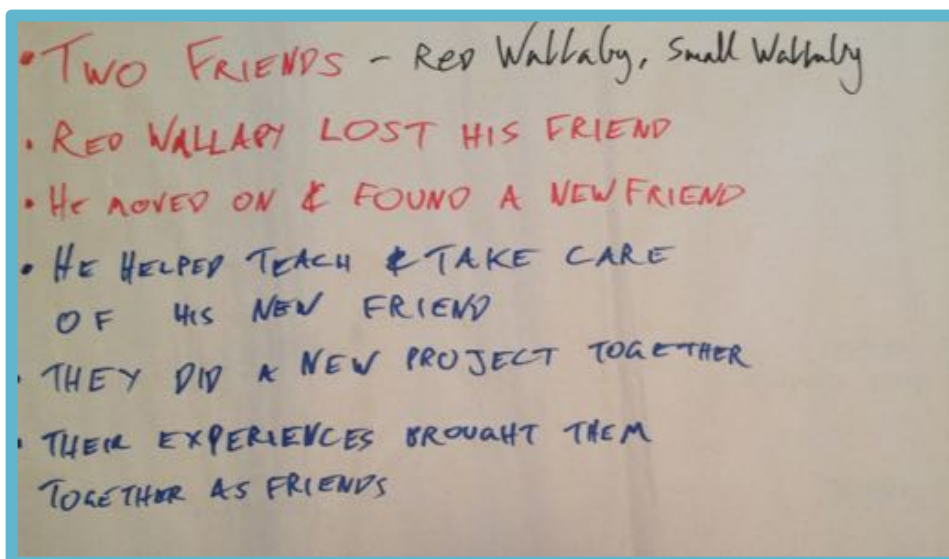 • TWO FRIENDS - Red Wallaby, Small Wallaby
• RED WALLABY LOST HIS FRIEND
• He MOVED ON & FOUND A NEW FRIEND
• HE HELPED TEACH & TAKE CARE
OF HIS NEW FRIEND
• THEY DID A NEW PROJECT TOGETHER
• THEIR EXPERIENCES BROUGHT THEM
TOGETHER AS FRIENDS